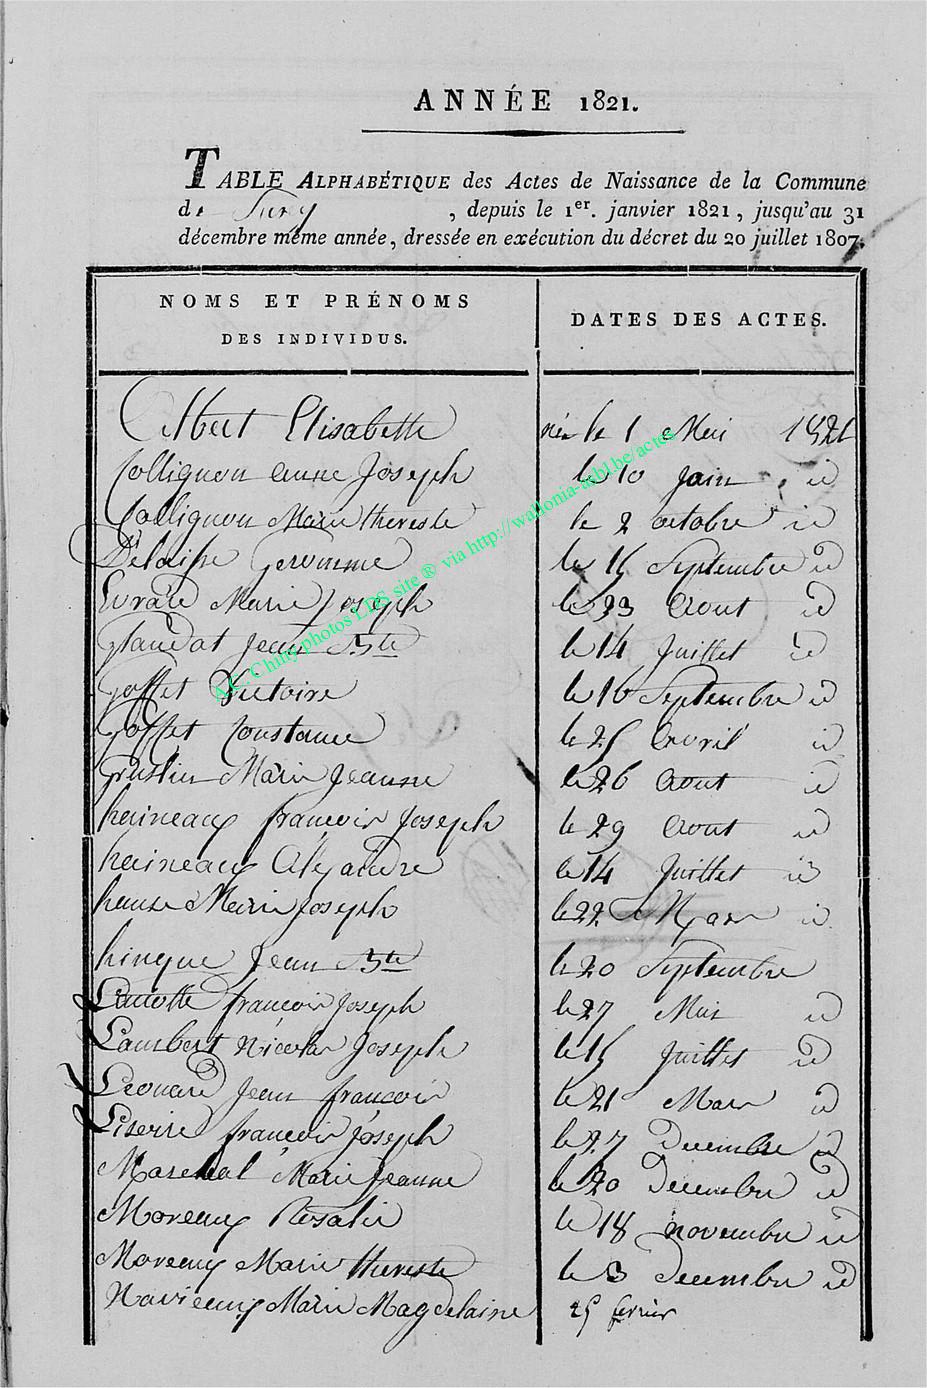 ANNÉE 1821.
TABLE ALPHABÉTIQUE des Actes de Naissance de la Commune
de Sury , depuis le 1er. janvier 1821, jusqu'au 31
décembre même année, dressée en exécution du décret du 20 juillet 1807.
NOMS ET PRÉNOMS
DES INDIVIDUS.
DATES DES ACTES.
Albert Elisabette née le 1 Mai 1821
Collignon anne Joseph le 10 juin id
Collignon Marie thereste le 2 octobre id
Delaisse Geromme le 15 Septembre id
Evrard Marie Joseph le 23 Aout id
Glaudat Jean Bte le 14 Juillet id
Goffet Victoire le 16 Septembre id
Goffet Constance le 25 Avril id
Grustin Marie Jeanne le 26 Aout id
haineaux francois Joseph le 29 Aout id
haineaux Alexandre le 14 Juillet id
Marie Joseph le 22 Mars id
hinque Jean Bte le 20 Septembre
Lamotte francois Joseph le 27 Mai id
Lambert Nicolas Joseph le 15 Juillet id
Léonard Jean francois le 21 Mars id
francois Joseph le 27 Decembre id
Marechal Marie Jeanne le 20 Decembre id
Moreaux Rosalie le 18 novembre id
Moreaux Marie thereste le 3 Decembre id
Marie Magdelaine 25 fevrier
A.E. Chiny photos LDS site ® via http://wallonia-asbl.be/actes